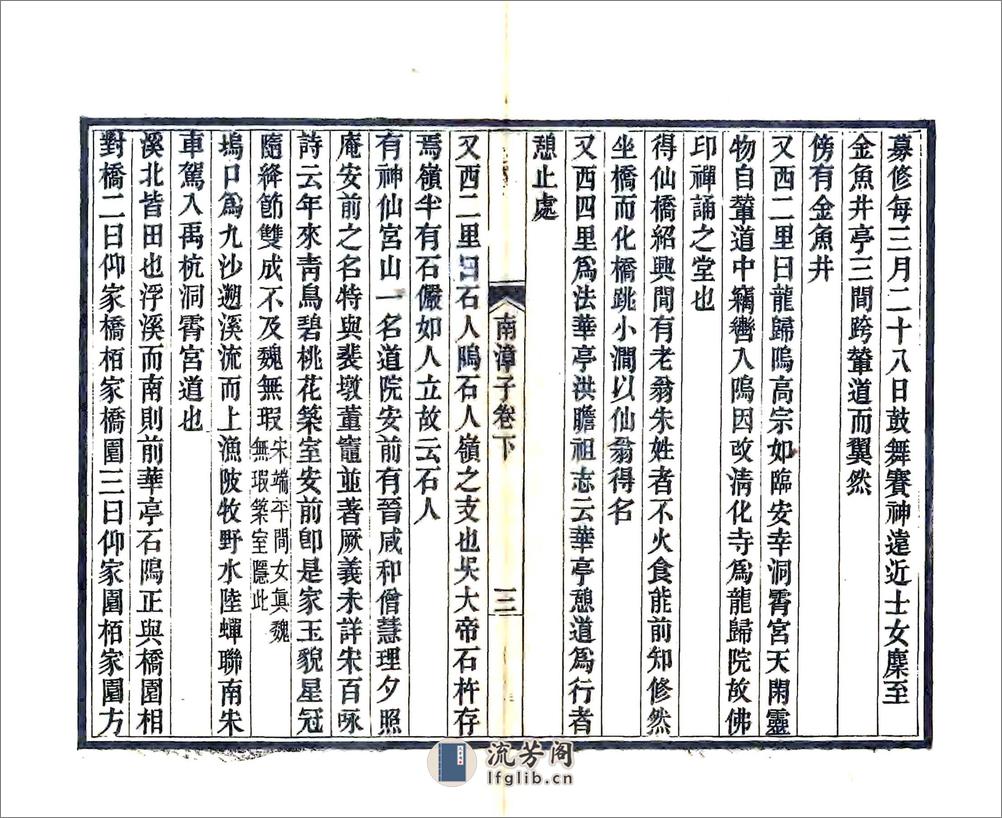 募修每三月二十八日鼓舞賽神遠近士女麇至
金魚井亭三間跨輦道而翼然
傍有金魚井
又西二里曰龍歸塢高宗如臨安幸洞霄宮天閑靈
物自輦道中竊轡入塢因改清化寺為龍歸院故佛
印禪誦之堂也
得仙橋紹興間有老翁朱姓者不火食能前知修然
坐橋而化橋跳小澗以仙翁得名
又西四里為法華亭洪瞻祖志云華亭憩道為行者
憩止處
南漳子卷下
三
又西二里曰石人塢石人嶺之支也吳大帝石杵存
焉嶺半有石儼如人立故云石人
有神仙宮山一名道院安前有晉咸和僧慧理夕照
庵安前之名特與裴墩董竈並著厥義未詳宋百詠
詩云年來靑鳥碧桃花築室安前卽是家玉貌星冠
隨絳節雙成不及魏無瑕宋端平間女真魏無瑕築室隱此
塢口為九沙遡溪流而上漁陂牧野水陸蟬聯南朱
車駕入禹杭洞霄宮道也
溪北皆田也浮溪而南則前華亭石塢正與橋園相
對橋二曰仰家橋栢家橋園三曰仰家園栢家園方
流芳阁
lfglib.cn